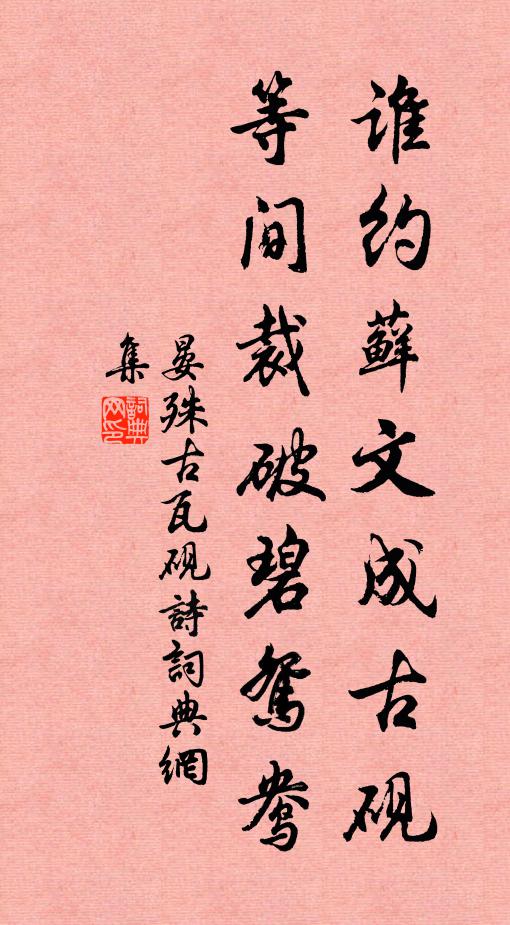 谁约藓文成古砚
等闲裁破碧鸳鸯
晏殊古瓦砚詩詞典網
集
詞典網印